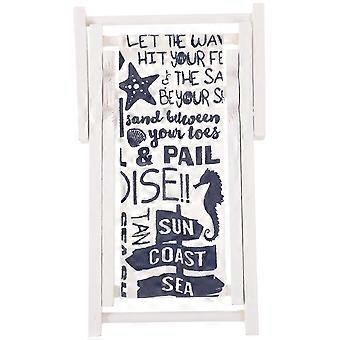 LET THE WAV
HIT YOUR FE
& THE SA
BE YOUR S
sand between
your toes
L & PAIL
OISE!!
TAN
SUN
COAST
SEA